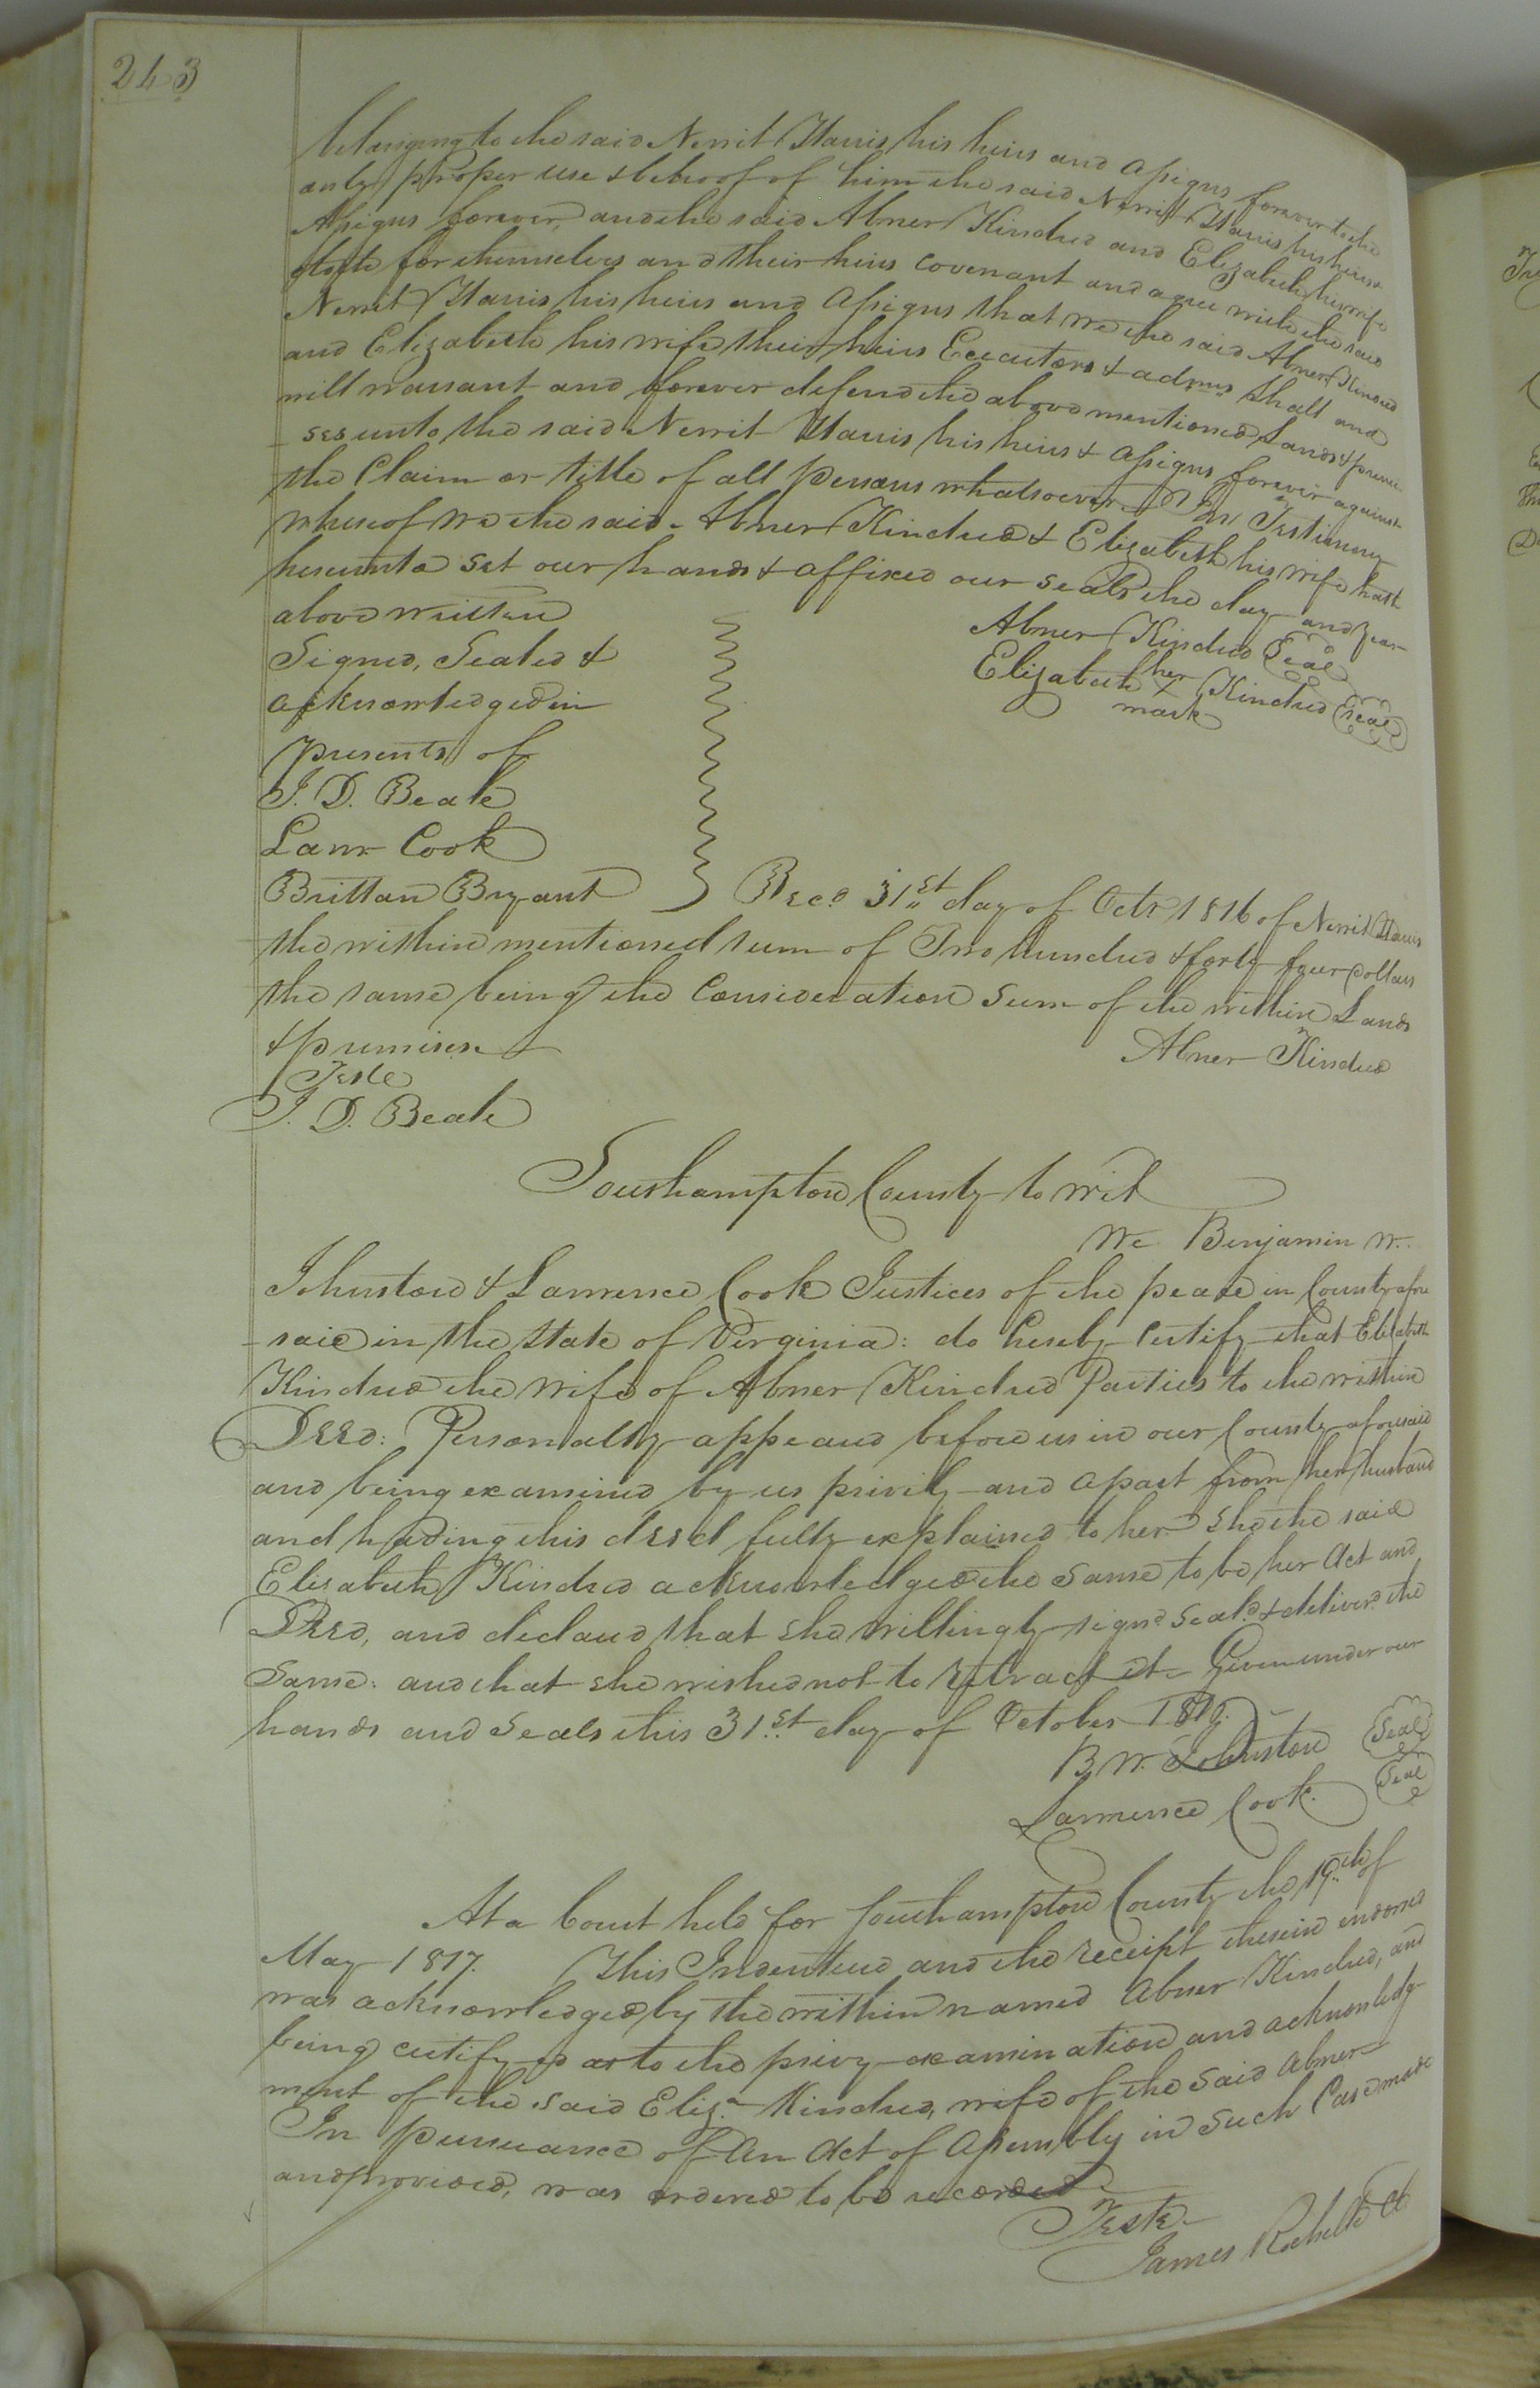 243
belonging to the said Nerrit Harris his heirs and assigns forever to the
only proper use & behoof of him the said Nerrit Harris his heirs &
Assigns forever, and the said Abner Kindred and Elizabeth his wife
doth for themselves and their heirs covenant and agree with the said
Nerrit Harris his heirs and Assigns that we the said Abner Kindred
and Elizabeth his wife their heirs Executors & admrs shall and
will warrant and forever defend the above mentioned Lands & premi-
-ses unto the said Nerrit Harris his heirs & assigns forever against
the Claim or title of all persons whatsoever In Testimony
whereof we the said Abner Kindred & Elizabeth his wife hath
hereunto set our hands & affixed our seals the day and year
above written
Abner Kindred Seal
Signed, Sealed &
her
Elizabeth X Kindred Seal
mark
acknowledged in
presents of
J. D. Beale
Lawr Cook
Brittan Bryant } Recd. 31st day of Octr 1816 of Nerrit Harris
the within mentioned sum of Two hundred & forty four Dollars
the same being the Consideration Sum of the within Lands
& premises
Abner Kindred
Teste
J. D. Beale
Southampton County to wit
We Benjamin W.
Johnston & Lawrence Cook Justices of the peace in County afore
-said in the State of Virginia: do hereby Certify that Elizabeth
Kindred the wife of Abner Kindred Parties to the within
Deed: Personally appeared before us in our County aforesaid
and being examined by us privily and apart from her husband
and having this deed fully explained to her she the said
Elizabeth Kindred acknowledged the Same to be her Act and
Deed, and declared that she willingly signd Seald & deliverd the
Same: and that she wished not to retract it Given under our
hands and Seals this 31st day of October 1816.
B. W. Johnston Seal
Lawrence Cook. Seal
At a Court held for Southampton County the 19th of
May 1817. This Indenture and the receipt therein endorsed
was acknowledged by the within named Abner Kindred, and
being certifyed as to the privy examination and acknowledg-
ment of the said Eliza. Kindred, wife of the said Abner
In pursuance of An Act of Assembly in Such Case made
and provided, was ordered to be recorded
Teste
James Rochelle Cl